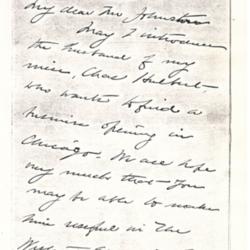 My dear Mr. Johnston
May I introduce
the husband of my
niece, Chas Hulbert -
who wants to find a
business opening in
Chicago. We all hope
very much that you
may be able to make
him useful in the
West -